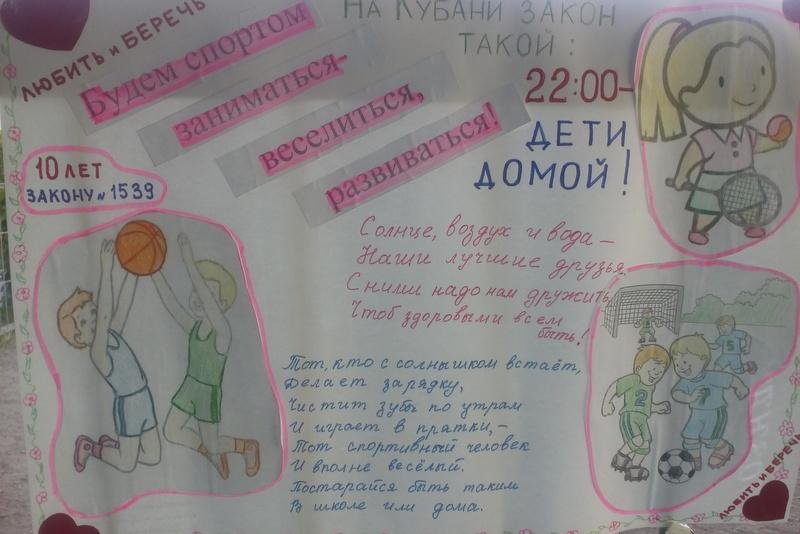 ЛЮБИТЬ и БЕРЕЧЬ
Будем спортом
заниматься-
веселиться,
развиваться!
НА КУБАНИ ЗАКОН
ТАКОЙ:
22:00-
ДЕТИ
ДОМОЙ!
10 ЛЕТ
ЗАКОНУ № 1539
Солнце, воздух и вода –
Наши лучшие друзья.
С ними надо нам дружить,
Чтоб здоровыми всем
быть!
Тот, кто с солнышком встаёт,
Делает зарядку,
Чистит зубы по утрам
И играет в прятки, –
Тот спортивный человек
И вполне весёлый.
Постарайся быть таким
В школе или дома.
2
7
5
ЛЮБИТЬ и БЕРЕЧЬ